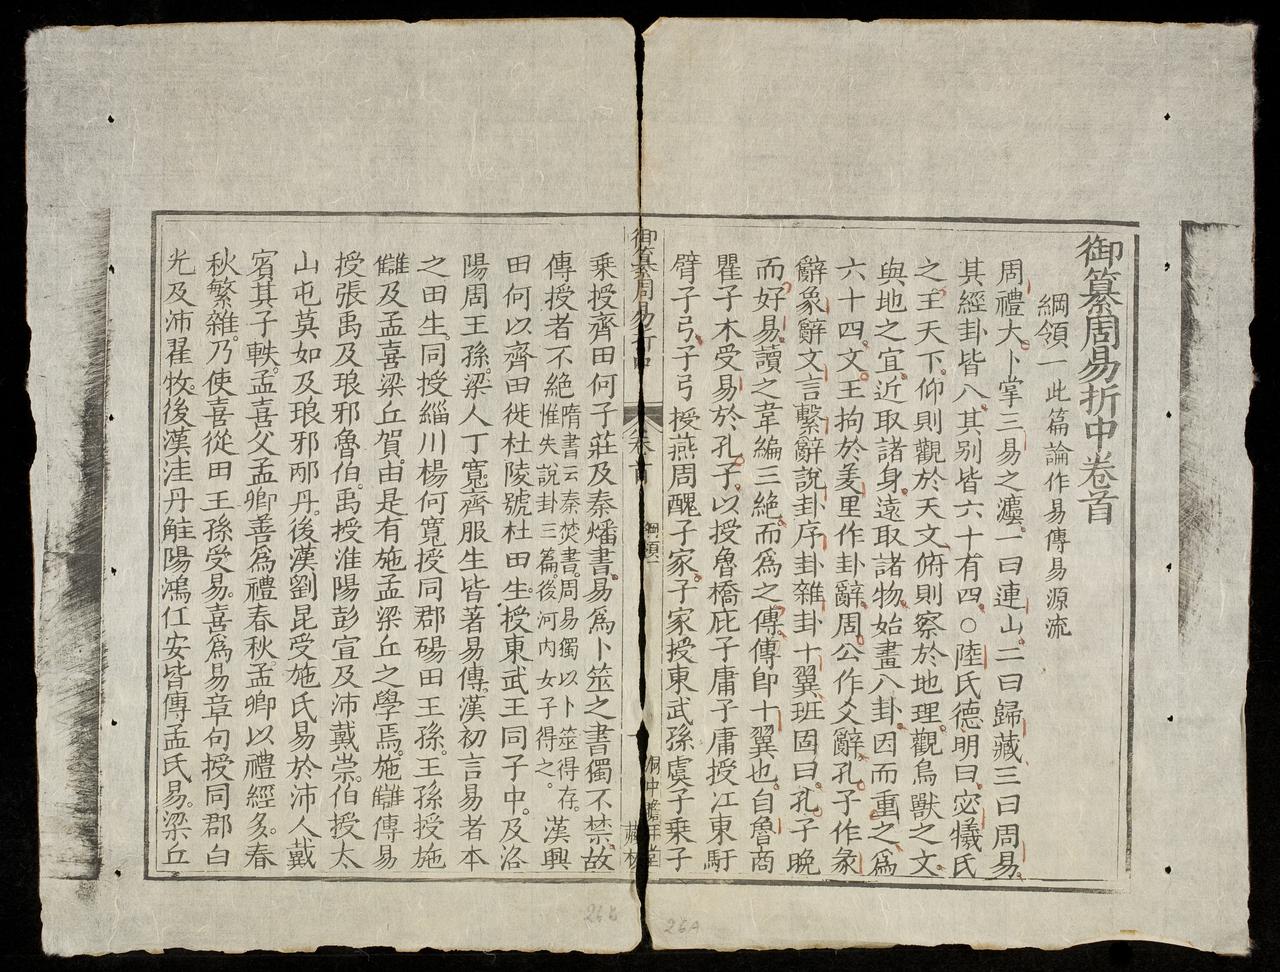 御纂周易折中卷首
綱領一 此篇論作易傳易源流
周禮大卜掌三易之灋。一曰連山。二曰歸藏。三曰周易。
其經卦皆八。其别皆六十有四。○陸氏德明曰。宓犧氏
之王天下。仰則觀於天文。俯則察於地理。觀鳥獸之文。
與地之宜。近取諸身。遠取諸物。始畫八卦。因而重之。爲
六十四。文王拘於羑里。作卦辭。周公作爻辭。孔子作彖
辭象辭文言繫辭說卦序卦雜卦十翼。班固曰。孔子晚
而好易。讀之韋編三絶。而爲之傳。傳卽十翼也。自魯商
瞿子木受易於孔子。以授魯橋庇子庸。子庸授江東馯
臂子弓。子弓授燕周醜子家。子家授東武孫虞子乘。子
御纂周易折中
卷首
綱領一
一
乘授齊田何子莊。及秦燔書。易爲卜筮之書獨不禁。故
傳授者不絶。隋書云秦焚書。周易獨以卜筮得存。惟失說卦三篇。後河内女子得之。漢興。
田何以齊田徙杜陵。號杜田生。授東武王同子中。及洛
陽周王孫。梁人丁寬。齊服生。皆著易傳。漢初言易者本
之田生。同授緇川楊何。寬授同郡碭田王孫。王孫授施
讎及孟喜梁丘賀。由是有施孟梁丘之學焉。施讎傳易
授張禹及琅邪魯伯。禹授淮陽彭宣及沛戴崇。伯授太
山屯莫如及琅邪邴丹。後漢劉昆受施氏易於沛人戴
賓。其子軼。孟喜父孟卿善爲禮春秋。孟卿以禮經多。春
秋繁雜。乃使喜從田王孫受易。喜爲易章句。授同郡白
光及沛翟牧。後漢洼丹觟陽鴻任安皆傳孟氏易。梁丘
26b
26A